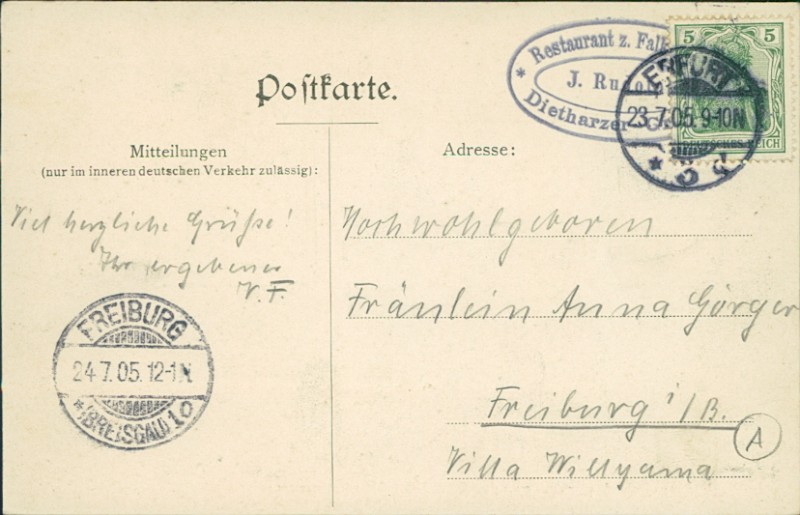 Postkarte.
* Restaurant z. Falk
J. Rudol
Dietharzer
ERFURT
23.7.05.9-10N
* 5
5 5
DEUTSCHES REICH
Mitteilungen
(nur im inneren deutschen Verkehr zulässig):
Adresse:
Viel herzliche Grüße!
Ihr ergebener
V. F.
Hochwohlgeboren
Fräulein Anna Görger
Freiburg i/B.
Villa Willyama
A
FREIBURG
24.7.05.12-1N
* (BREISGAU) 1